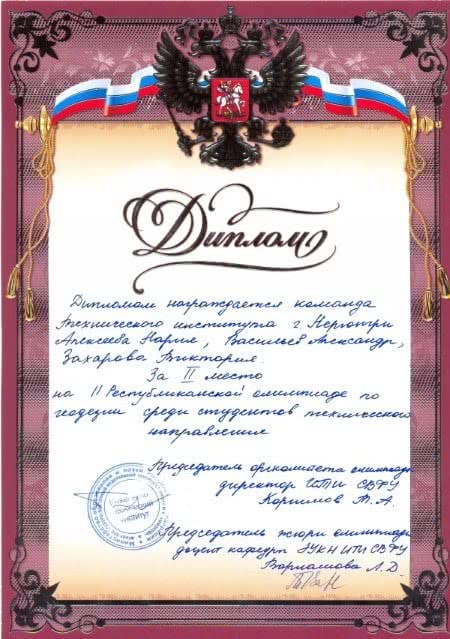 Диплом
Дипломом награждается команда
Технического института г. Нерюнгри
Алексеева Нария, Васильев Александр,
Захарова Виктория.
За II место
на II Республиканской олимпиаде по
геодезии среди студентов технического
направления
Председатель оргкомитета олимпиады
директор ИТИ СВФУ
Корнилов Т. А.
Председатель жюри олимпиады
доцент кафедры ЭУКН ИТИ СВФУ
Варламова Л. Д.
институт